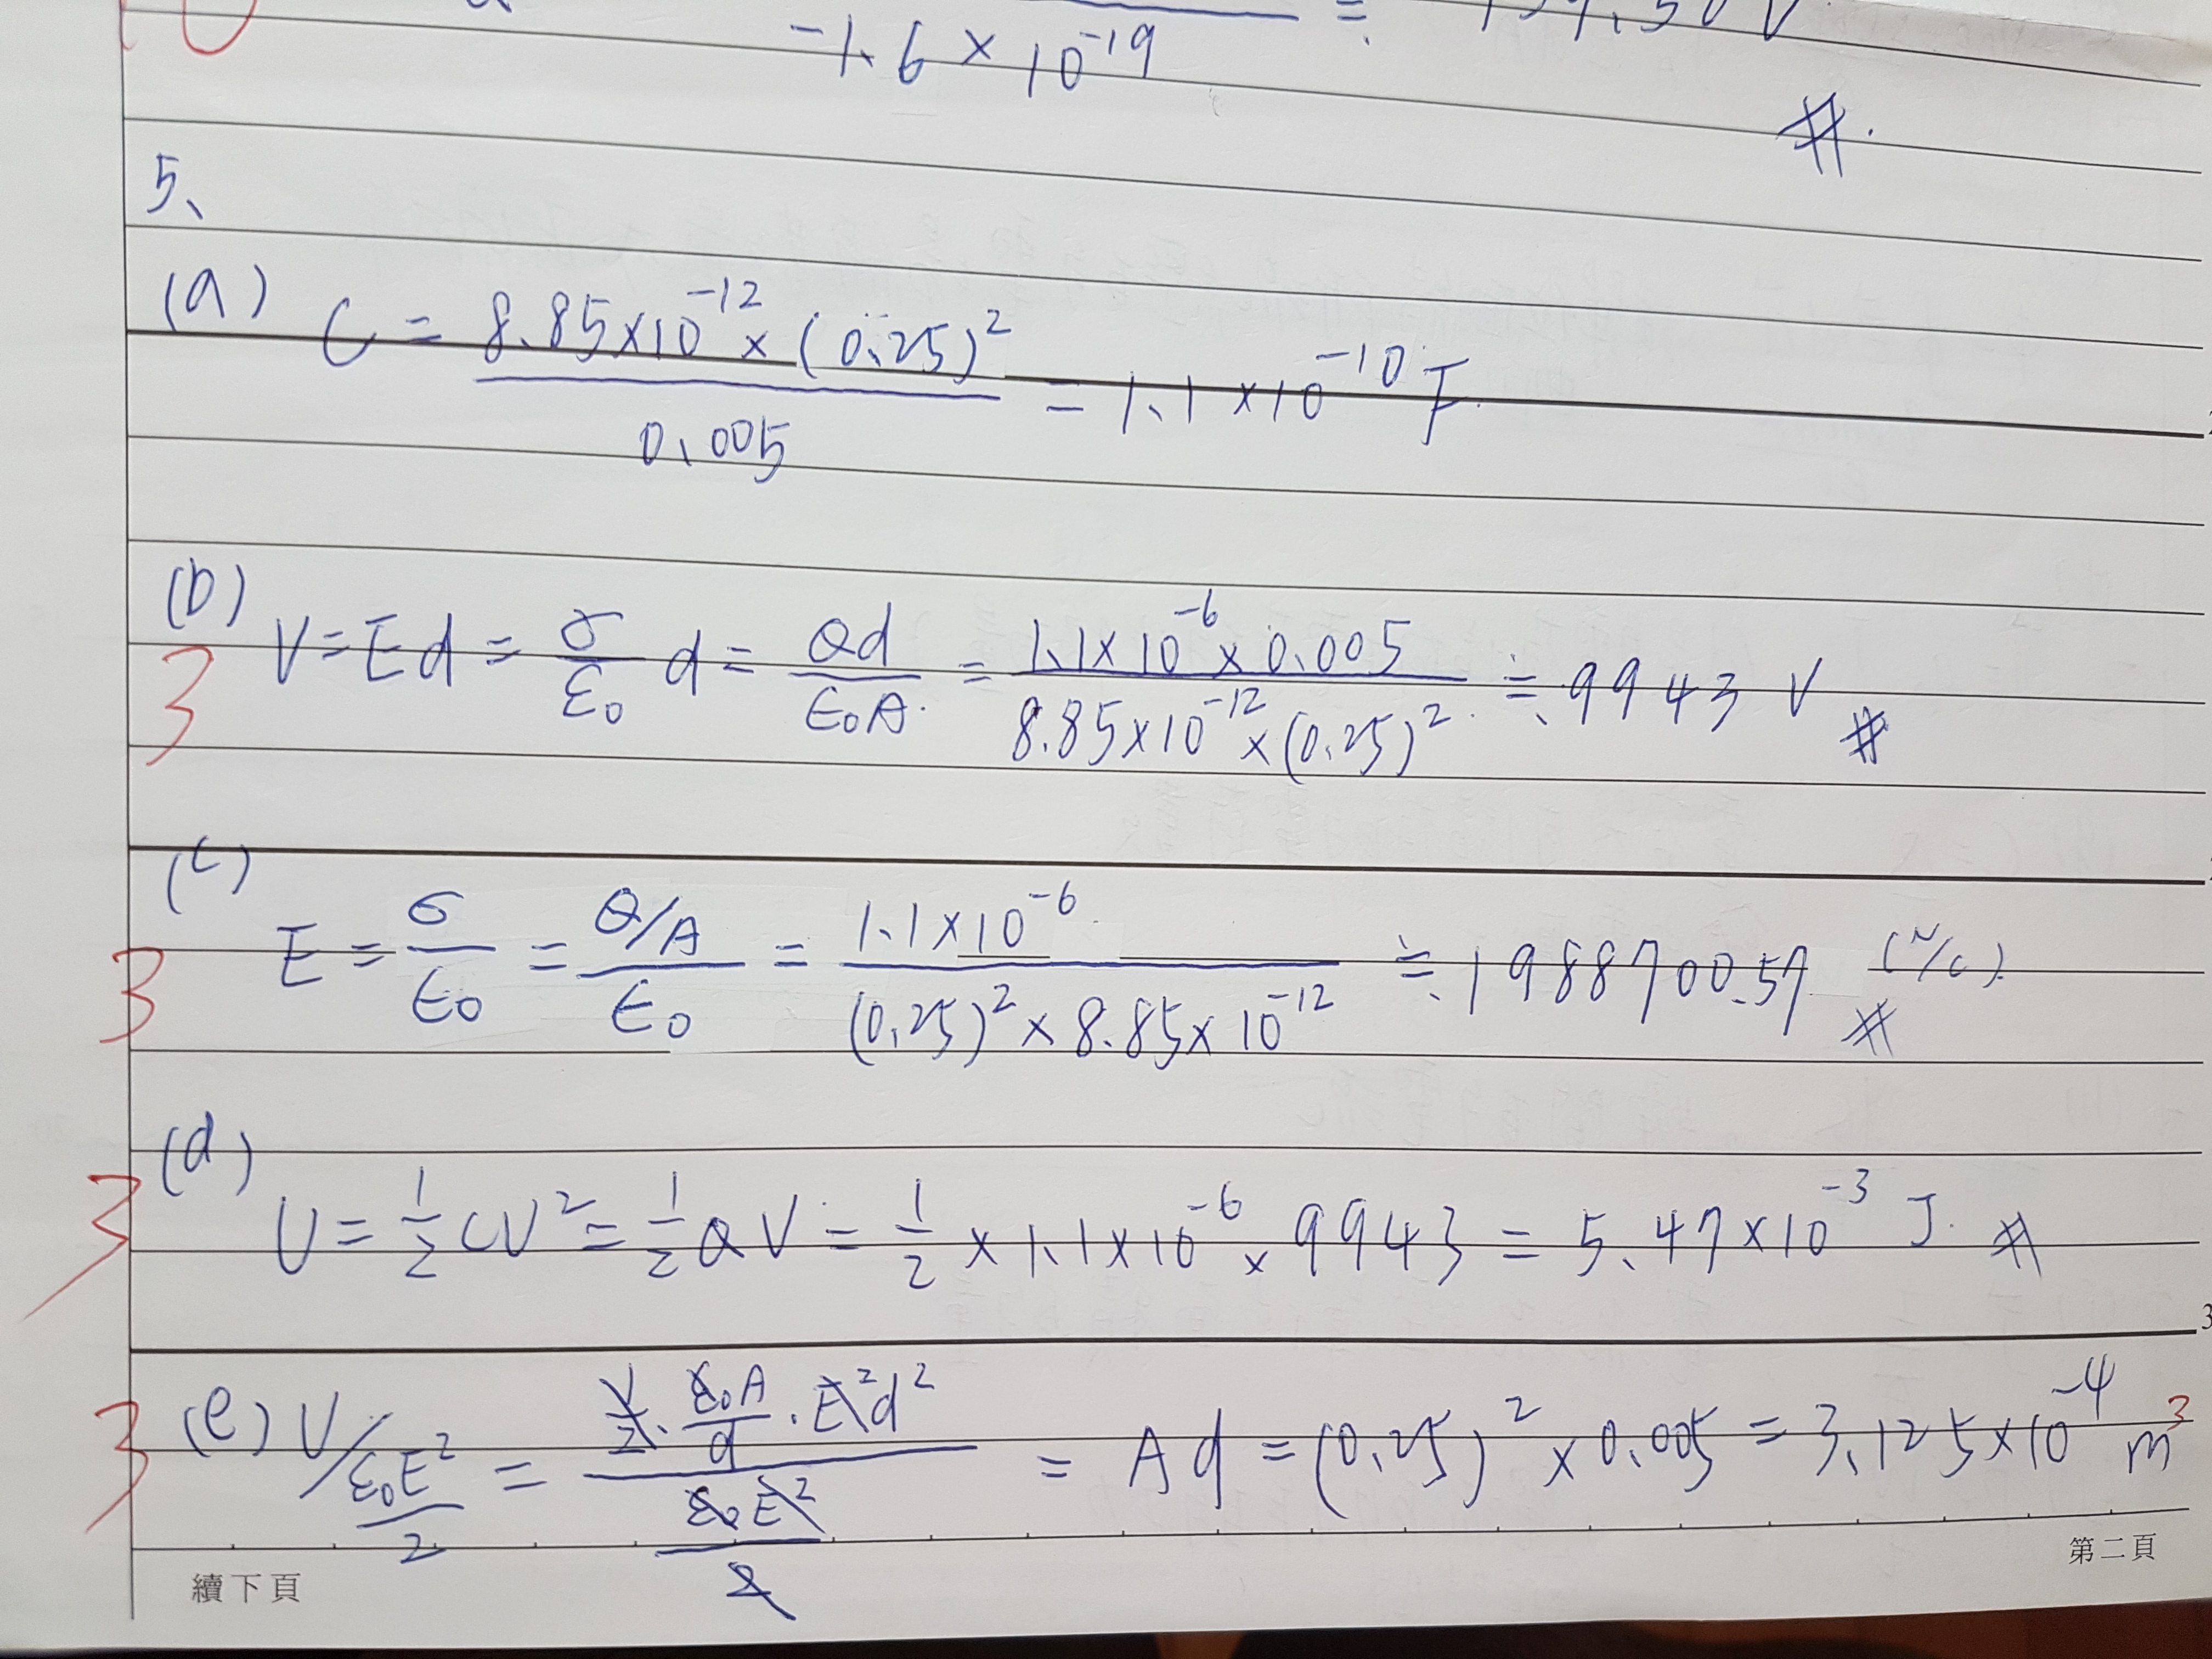 -1.6 × 10^-19
#.
5、
(a) C = 8.85×10^-12 × (0.25)^2 / 0.005 = 1.1 × 10^-10 F
(b) V = Ed = σ/ε0 d = Qd/ε0A = 1.1 × 10^-6 × 0.005 / 8.85×10^-12 × (0.25)^2 ≒ 9943 V #
3
(c)
E = σ/ε0 = Q/A / ε0 = 1.1 × 10^-6 / (0.25)^2 × 8.85 × 10^-12 ≒ 1988700.57 (N/C) #
3
(d)
U = 1/2 CV^2 = 1/2 QV = 1/2 × 1.1 × 10^-6 × 9943 = 5.47 × 10^-3 J #
3
(e) U / ε0E^2/2 = 1/2 · ε0A/d · E^2d^2 / ε0E^2/2 = Ad = (0.25)^2 × 0.005 = 3.125 × 10^-4 m^3
3
續下頁
第二頁